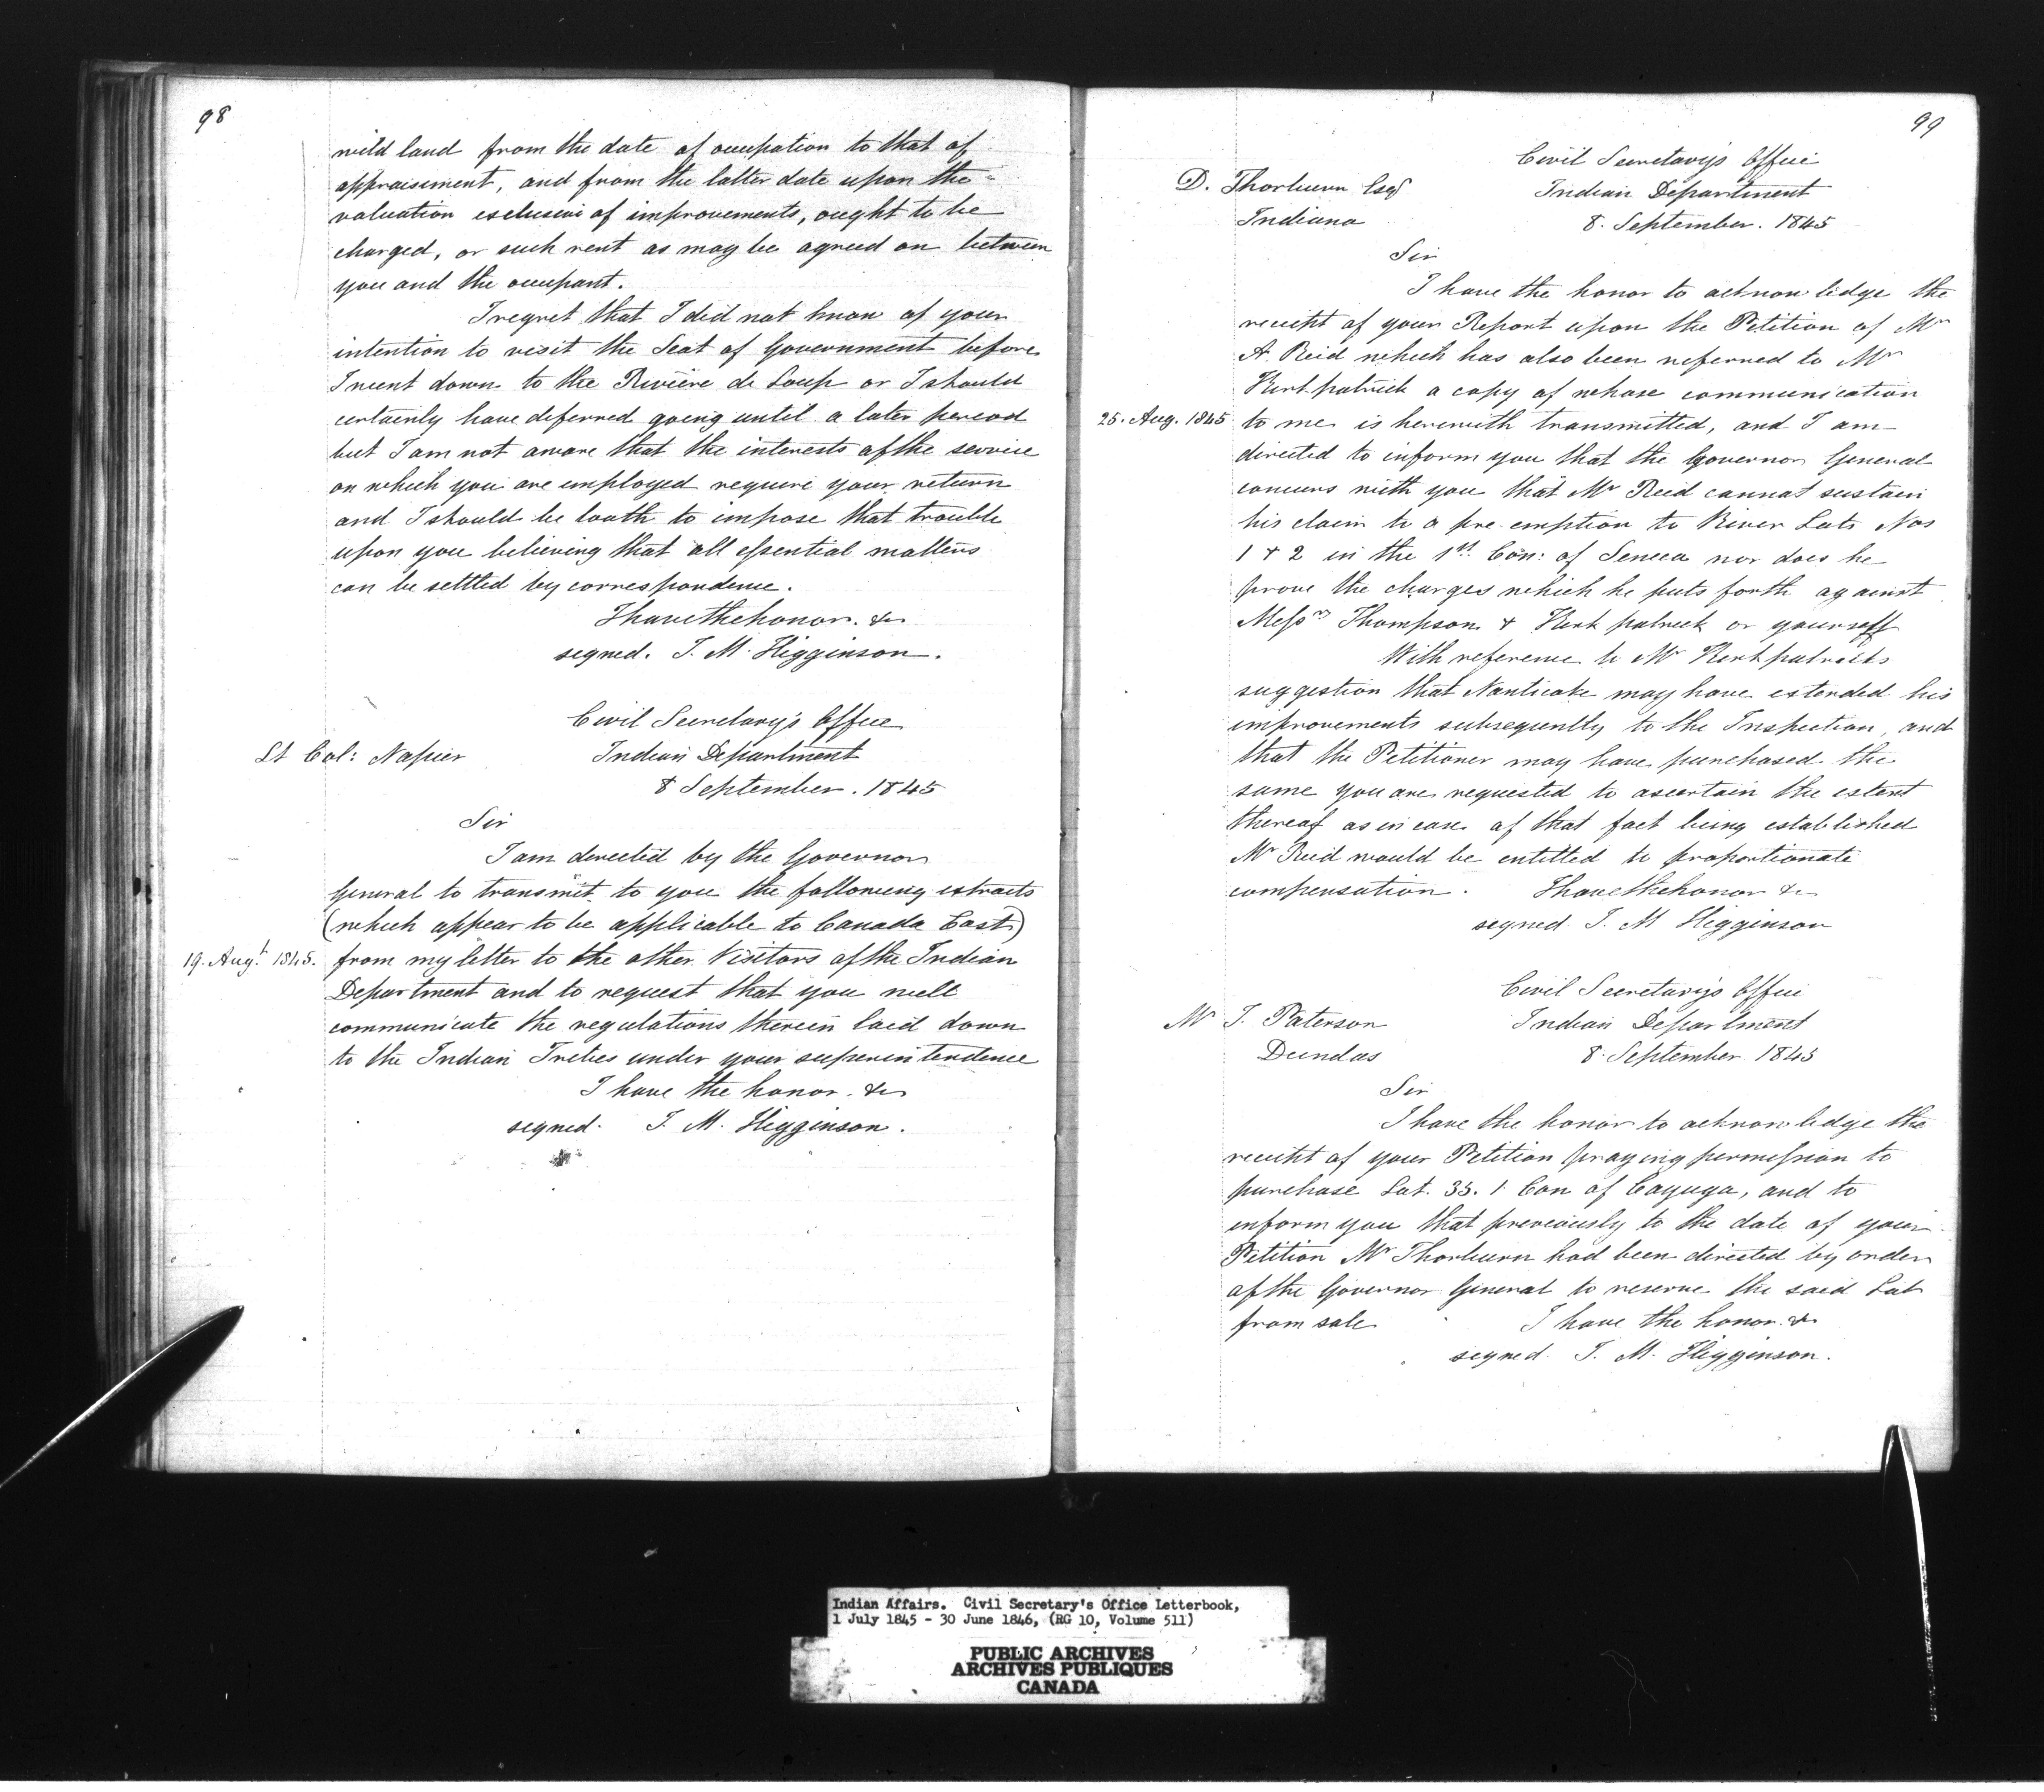 98
wild land from the date of occupation to that of
appraisement, and from the latter date upon the
valuation exclusive of improvements, ought to be
charged, or such rent as may be agreed on between
you and the occupant.
I regret that I did not know of your
intention to visit the Seat of Government before
I went down to the Rivière de Loup or I should
certainly have deferred going until a later period
but I am not aware that the interests of the service
on which you are employed require your return
and I should be loath to impose that trouble
upon you believing that all essential matters
can be settled by correspondence.
I have the honor. &c
signed. J. M. Higginson.
Civil Secretary's Office
Lt Col: Napier Indian Department
8 September. 1845
Sir
I am directed by the Governor
General to transmit to you the following extracts
(which appear to be applicable to Canada East)
19. Augt 1845. from my letter to the other Visitors of the Indian
Department and to request that you will
communicate the regulations therein laid down
to the Indian Tribes under your superintendence
I have the honor. &c
signed. J. M. Higginson.
99
Civil Secretary's Office
D. Thorburn Esqr Indian Department
Indiana 8. September. 1845
Sir
I have the honor to acknowledge the
receipt of your Report upon the Petition of Mr
A. Reid which has also been referred to Mr
Kirkpatrick a copy of whose communication
25. Aug. 1845 to me is herewith transmitted, and I am
directed to inform you that the Governor General
concurs with you that Mr Reid cannot sustain
his claim to a pre emption to River Lots Nos
1 & 2 in the 1st Con: of Seneca nor does he
prove the charges which he puts forth against
Messrs Thompson & Kirkpatrick or yourself
With reference to Mr Kirkpatricks
suggestion that Nanticoke may have extended his
improvements subsequently to the Inspection, and
that the Petitioner may have purchased the
same you are requested to ascertain the extent
thereof as in case of that fact being established
Mr Reid would be entitled to proportionate
compensation. I have the honor &c
signed J. M Higginson
Civil Secretary's Office
Mr J. Paterson Indian Department
Dundas 8. September 1845
Sir
I have the honor to acknowledge the
receipt of your Petition praying permission to
purchase Lot. 35. 1 Con of Cayuga, and to
inform you that previously to the date of your
Petition Mr Thorburn had been directed by order
of the Governor General to reserve the said Lot
from sale I have the honor. &c
signed. J. M. Higginson.
Indian Affairs. Civil Secretary's Office Letterbook,
1 July 1845 - 30 June 1846, (RG 10, Volume 511)
PUBLIC ARCHIVES
ARCHIVES PUBLIQUES
CANADA